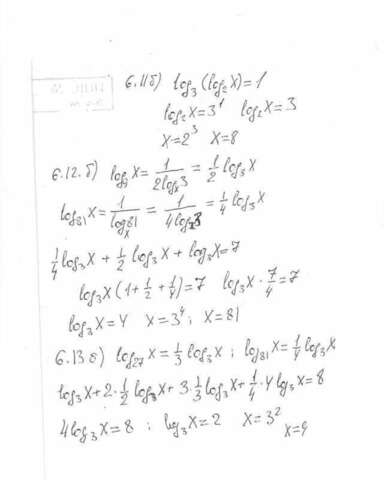 6.11б) log₃(log₂X)=1
log₂X=3¹ log₂X=3
X=2³ X=8
6.12.б) log₉X=1/(2logₓ3)=1/2 log₃X
log₈₁X=1/(logₓ81)=1/(4logₓ3)=1/4 log₃X
1/4 log₃X+1/2 log₃X+log₃X=7
log₃X(1+1/2+1/4)=7 log₃X·7/4=7
log₃X=4 X=3⁴; X=81
6.13 в) log₂₇X=1/3 log₃X; log₈₁X=1/4 log₃X
log₃X+2·1/2 log₃X+3·1/3 log₃X+1/4·4 log₃X=8
4log₃X=8; log₃X=2 X=3²
X=9